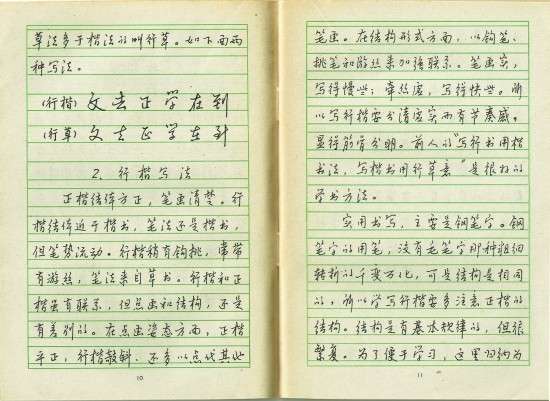 草法多于楷法的叫行草。如下面两
种写法。
(行楷) 文去正学在到
(行草) 文去正学在到
2. 行楷写法
正楷结体方正，笔画清楚。行
楷结体近于楷书，笔法还是楷书，
但笔势流动。行楷稍有钩挑，常带
有游丝，笔法来自草书。行楷和正
楷虽有联系，但点画和结构，还是
有差别的。在点画姿态方面，正楷
平正，行楷欹斜，还多以点代其他
10
笔画。在结构形式方面，以钩笔、
挑笔和游丝来加强联系。笔画实，
写得慢些；牵丝虚，写得快些。所
以写行楷要分清虚实而有节奏感，
显得筋骨分明。前人的“写行书用楷
书法，写楷书用行草意”是很好的
学书方法。
实用书写，主要是钢笔字。钢
笔字的用笔，没有毛笔字那种粗细
转折的千变万化，可是结构是相同
的，所以学写行楷要多注意正楷的
结构。结构是有基本规律的，但很
繁复。为了便于学习，这里归纳为
11